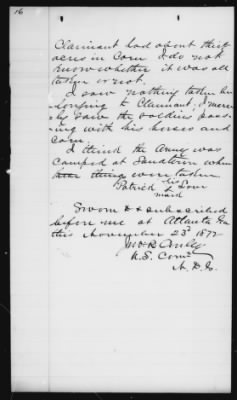 16
Claimant had about thirty
acres in Corn I do not
know whether it was all
taken or not.
I saw nothing taken be-
longing to Claimant, I mere-
ly saw the soldiers pass-
ing with his horses and
Corn.
I think the Army was
Camped at Sandtown when
these things were taken
his
Patrick X Love
mark
Sworn to & subscribed
before me at Atlanta Ga
this November 23d 1872
U.S. Comr